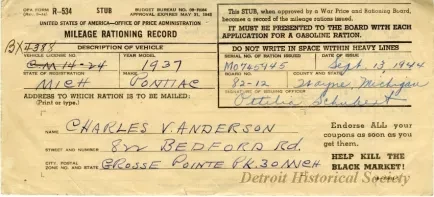 OPA FORM R-534 STUB BUDGET BUREAU NO. 08-R084 APPROVAL EXPIRES MAY 31, 1945
UNITED STATES OF AMERICA—OFFICE OF PRICE ADMINISTRATION
MILEAGE RATIONING RECORD
This STUB, when approved by a War Price and Rationing Board, becomes a record of the mileage rations issued.
IT MUST BE PRESENTED TO THE BOARD WITH EACH APPLICATION FOR A GASOLINE RATION.
DESCRIPTION OF VEHICLE
DO NOT WRITE IN SPACE WITHIN HEAVY LINES
VEHICLE LICENSE NO. YEAR MODEL
CM 14-24 1937
SERIAL NO. OF RATION ISSUED DATE OF ISSUE
Sept. 13, 1944
STATE OF REGISTRATION MAKE
MICH PONTIAC
BOARD NO. COUNTY AND STATE
82-12 Wayne, Michigan
ADDRESS TO WHICH RATION IS TO BE MAILED:
(Print or type.)
SIGNATURE OF ISSUING OFFICER
NAME CHARLES V. ANDERSON
STREET AND NUMBER BEDFORD Rd.
CITY, POSTAL ZONE NO. AND STATE GROSSE POINTE PK. 30 MICH
Endorse ALL your coupons as soon as you get them.
HELP KILL THE BLACK MARKET!
Detroit Historical Society